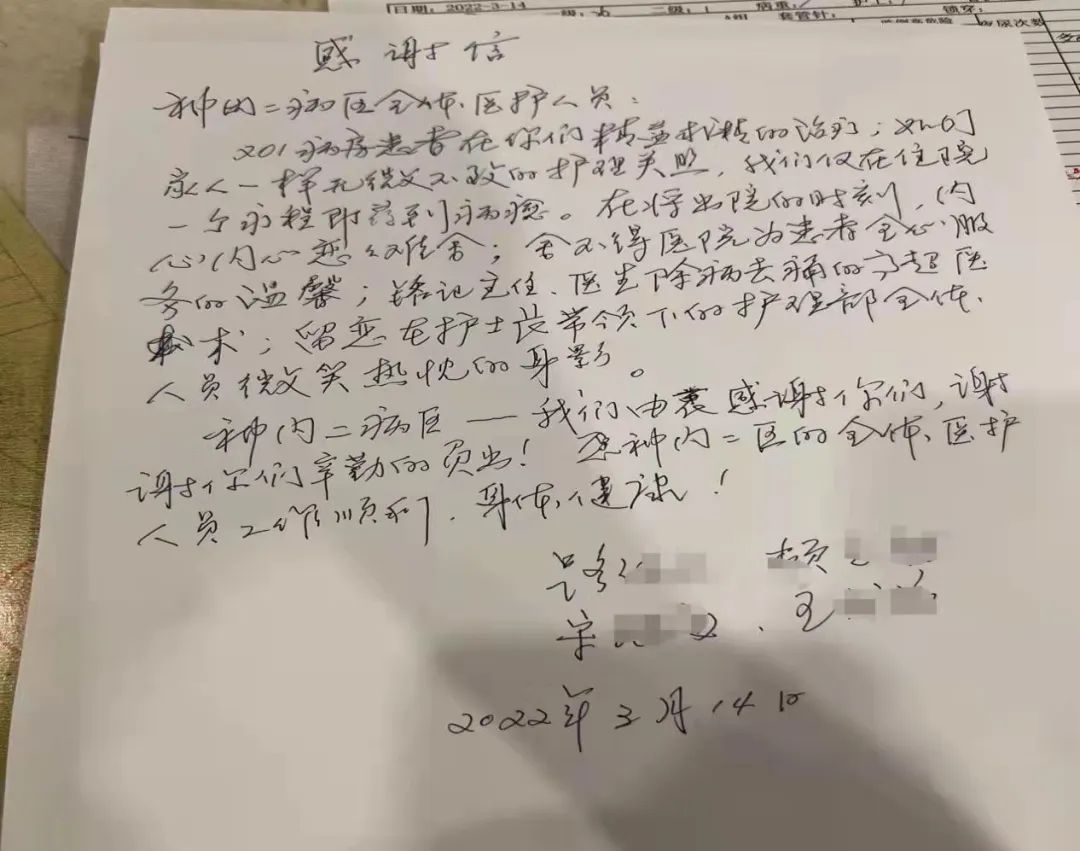 日期: 2022-3-14
一级: 二级: 1 病重:
套管针:
尿次数
感谢信
神内二病区全体医护人员:
201病房患者在你们精益求精的治疗;如同
家人一样无微不致的护理关照,我们仅在住院
一个疗程即药到病癒。在将出院的时刻,内
心内心恋恋难舍;舍不得医院为患者全心服
务的温馨;铭记主任、医生除病去痛的高超医
术;留恋在护士长带领下的护理部全体
人员微笑热忱的身影。
神内二病区——我们由衷感谢你们,谢
谢你们辛勤的负出!愿神内二区的全体医护
人员工作顺利.身体健康!
路 赖
宋 王
2022年3月14日